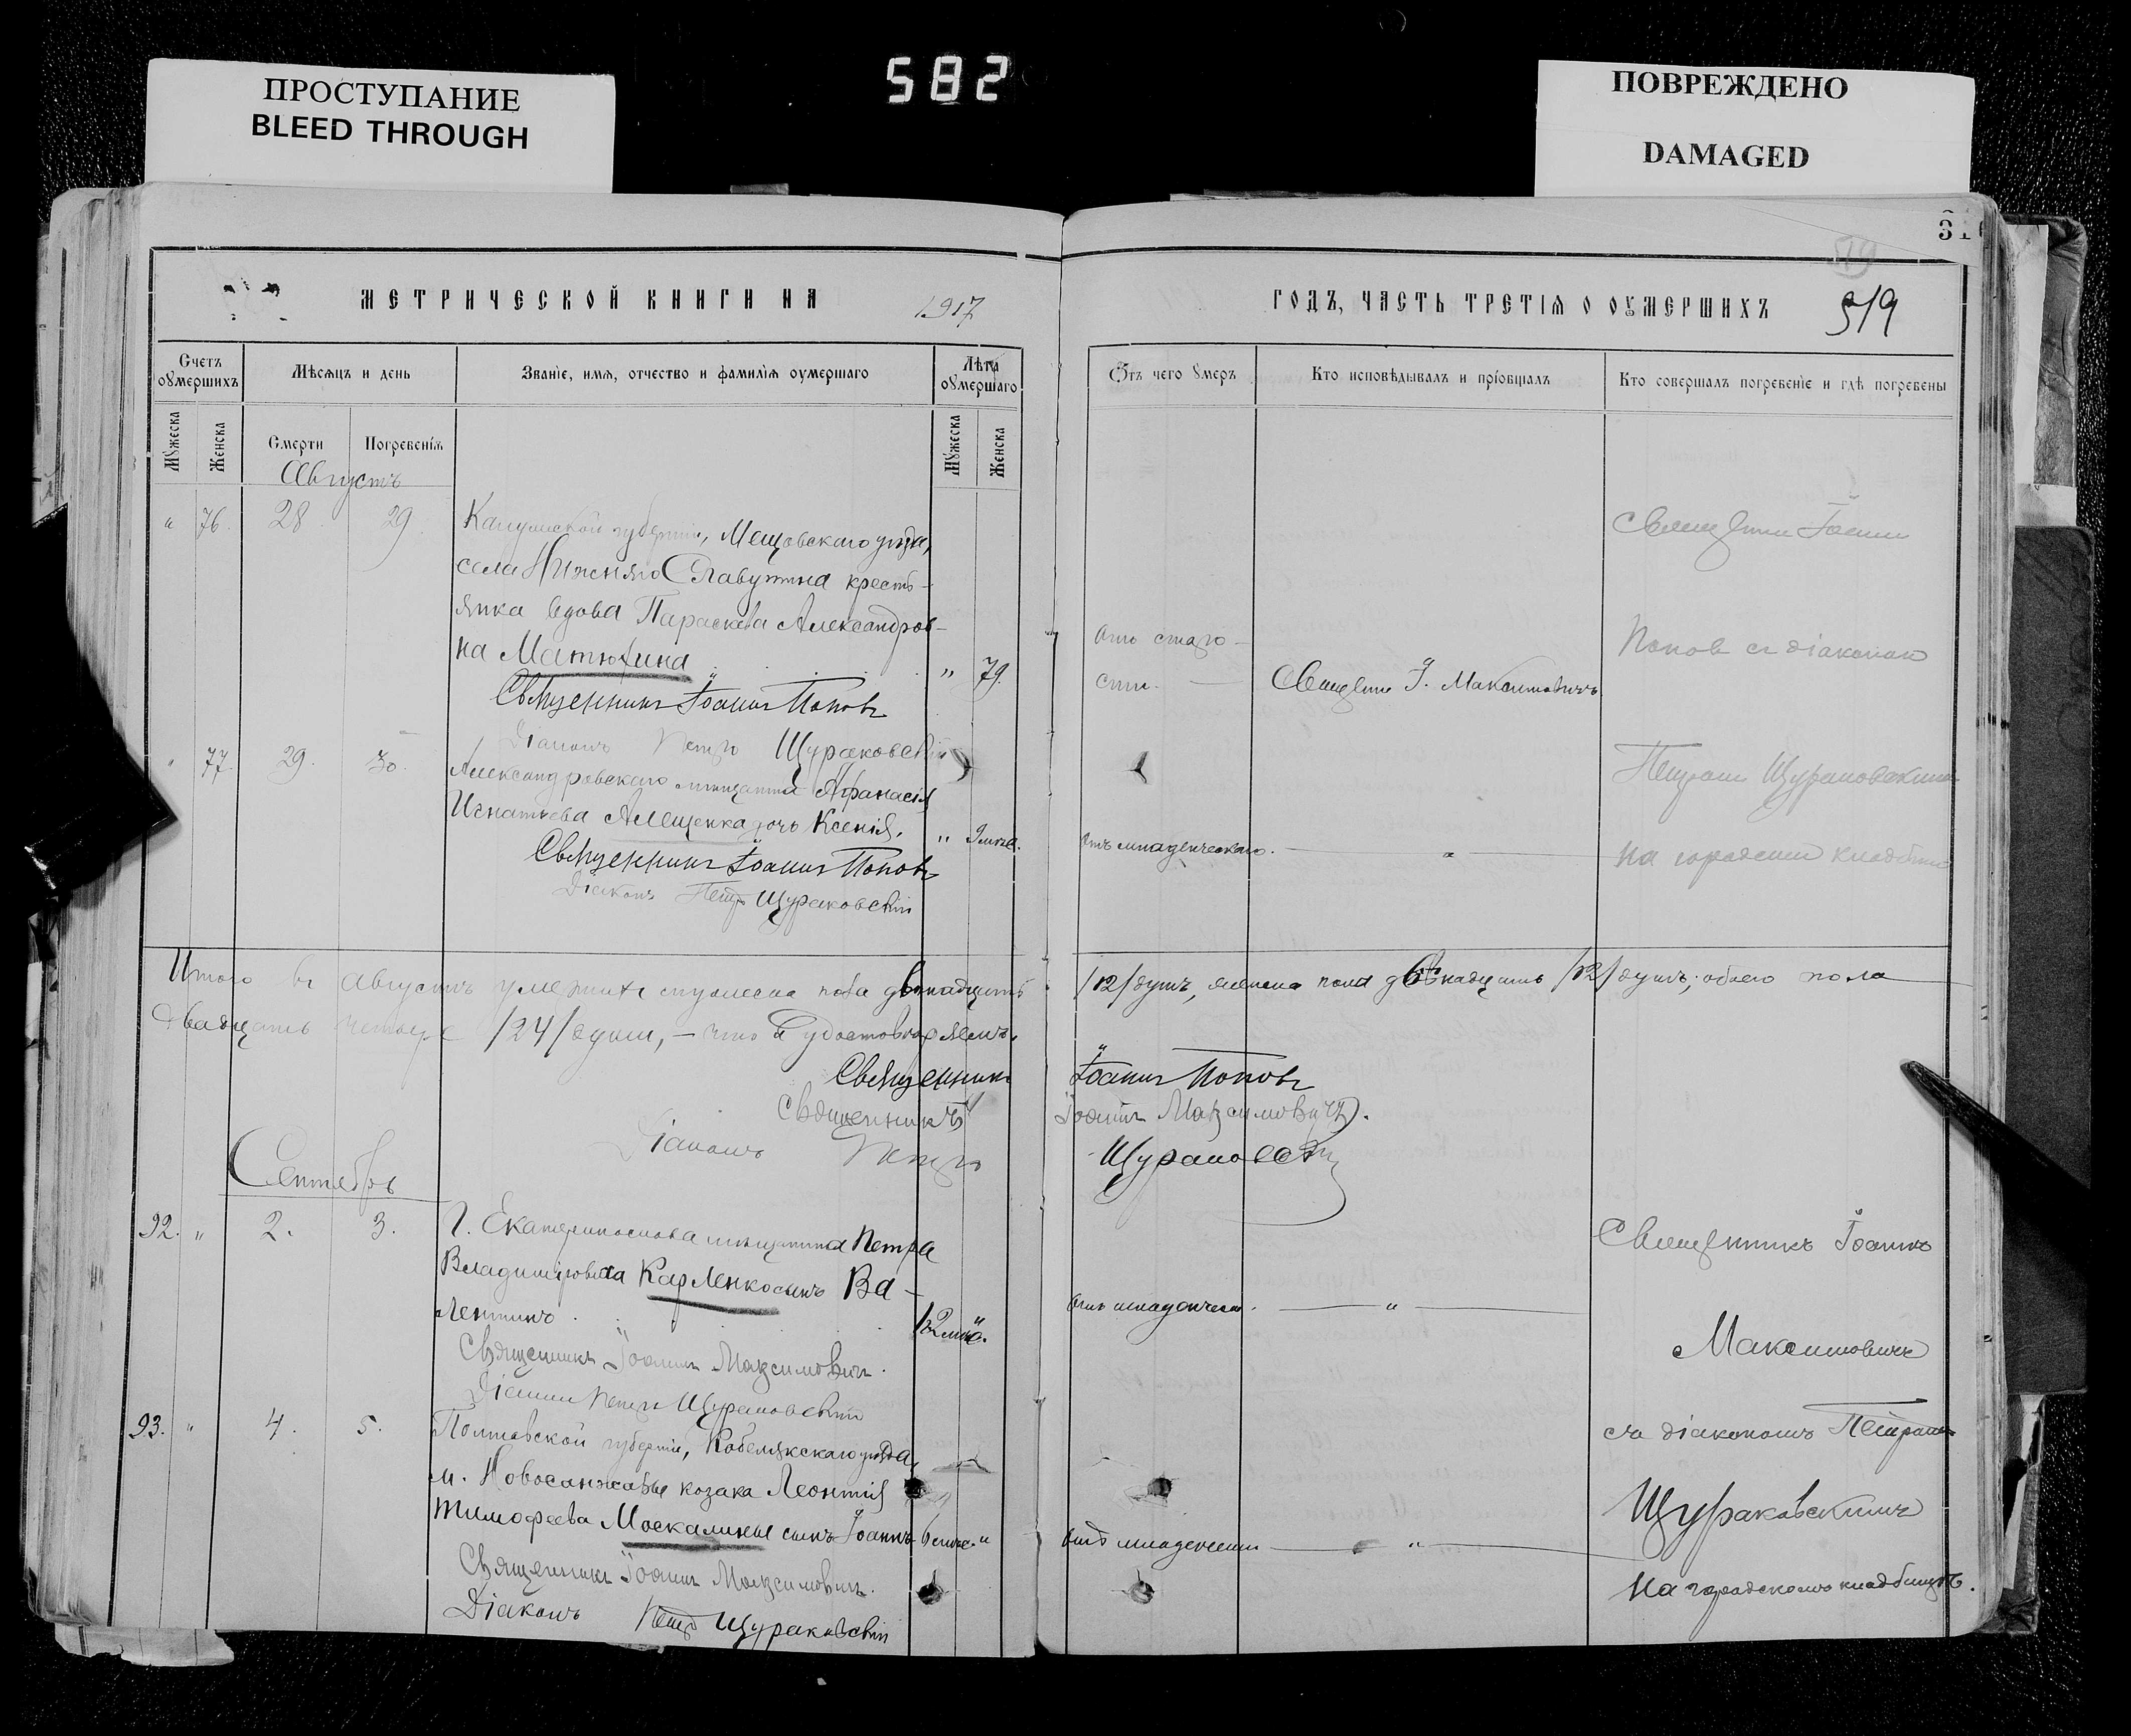 ПРОСТУПАНИЕ
BLEED THROUGH
582
ПОВРЕЖДЕНО
DAMAGED
31
МЕТРИЧЕСКОЙ КНИГИ НА 1917
ГОДЪ, ЧАСТЬ ТРЕТІѦ О ОУМЕРШИХЪ 519
Счетъ оумершихъ
Мѣсѧцъ и день
Званіе, имѧ, отчество и фамиліѧ оумершаго
Лѣта оумершаго
Отъ чего умеръ
Кто исповѣдывалъ и пріобщалъ
Кто совершалъ погребеніе и гдѣ погребены
Мужеска
Женска
Смерти
Погребеніѧ
Мужеска
Женска
Августъ
" 76. 28 29.
Калужской губерніи, Мещовскаго уѣзда,
села Нижняго
кресть-
янка вдова Параскева Александров-
на Матюхина " 79.
Священникъ Іоаннъ Поповъ
Діаконъ Петръ Щураковскій
Отъ старо-
сти.
Священ. І. Максимовичъ
Священ. Іоаннъ
Поповъ съ діакономъ
Петромъ Щураковскимъ
на городскомъ кладбищѣ
" 77. 29. 30.
Александровскаго мѣщанина Афанасія
Игнатьева Алещенка дочь Ксенія. " 9 мѣс.
Священникъ Іоаннъ Поповъ
Діаконъ Петръ Щураковскій
Отъ младенческаго. "
Итого въ Августѣ умершихъ мужеска пола двѣнадцать /12/ душъ, женска пола двѣнадцать /12/ душъ, обоего пола
двадцать четыре /24/ души, – что и удостовѣряемъ.
Священникъ Іоаннъ Поповъ
Священникъ Іоаннъ Максимовичъ.
Діаконъ Петръ Щураковскій
Сентябрь
92. " 2. 3.
Г. Екатеринослава мѣщанина Петра
Владимірова Карленко сынъ Ва-
лентинъ
Священникъ Іоаннъ Максимовичъ.
Діаконъ Петръ Щураковскій
Отъ младенческ. "
Священникъ Іоаннъ
Максимовичъ
съ діакономъ Петромъ
Щураковскимъ
на городскомъ кладбищѣ.
93. " 4. 5.
Полтавской губерніи, Кобелякскаго уѣзда,
м. Новосанжары козака Леонтія
Тимофеева сынъ Іоаннъ 6 мѣс. "
Священникъ Іоаннъ Максимовичъ.
Діаконъ Петръ Щураковскій
Отъ младенческ. "